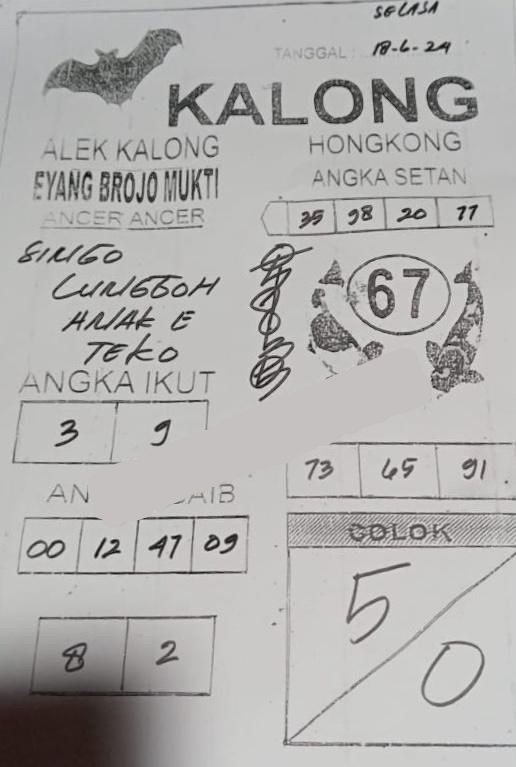 SELASA
TANGGAL : 18-6-24
KALONG
ALEK KALONG
EYANG BROJO MUKTI
ANCER ANCER
SINGO
LUNGGOH
ANAK E
TEKO
HONGKONG
ANGKA SETAN
35 98 20 77
67
ANGKA IKUT
3 9
73 65 91
AN AIB
00 12 47 09
COLOK
5
0
8 2